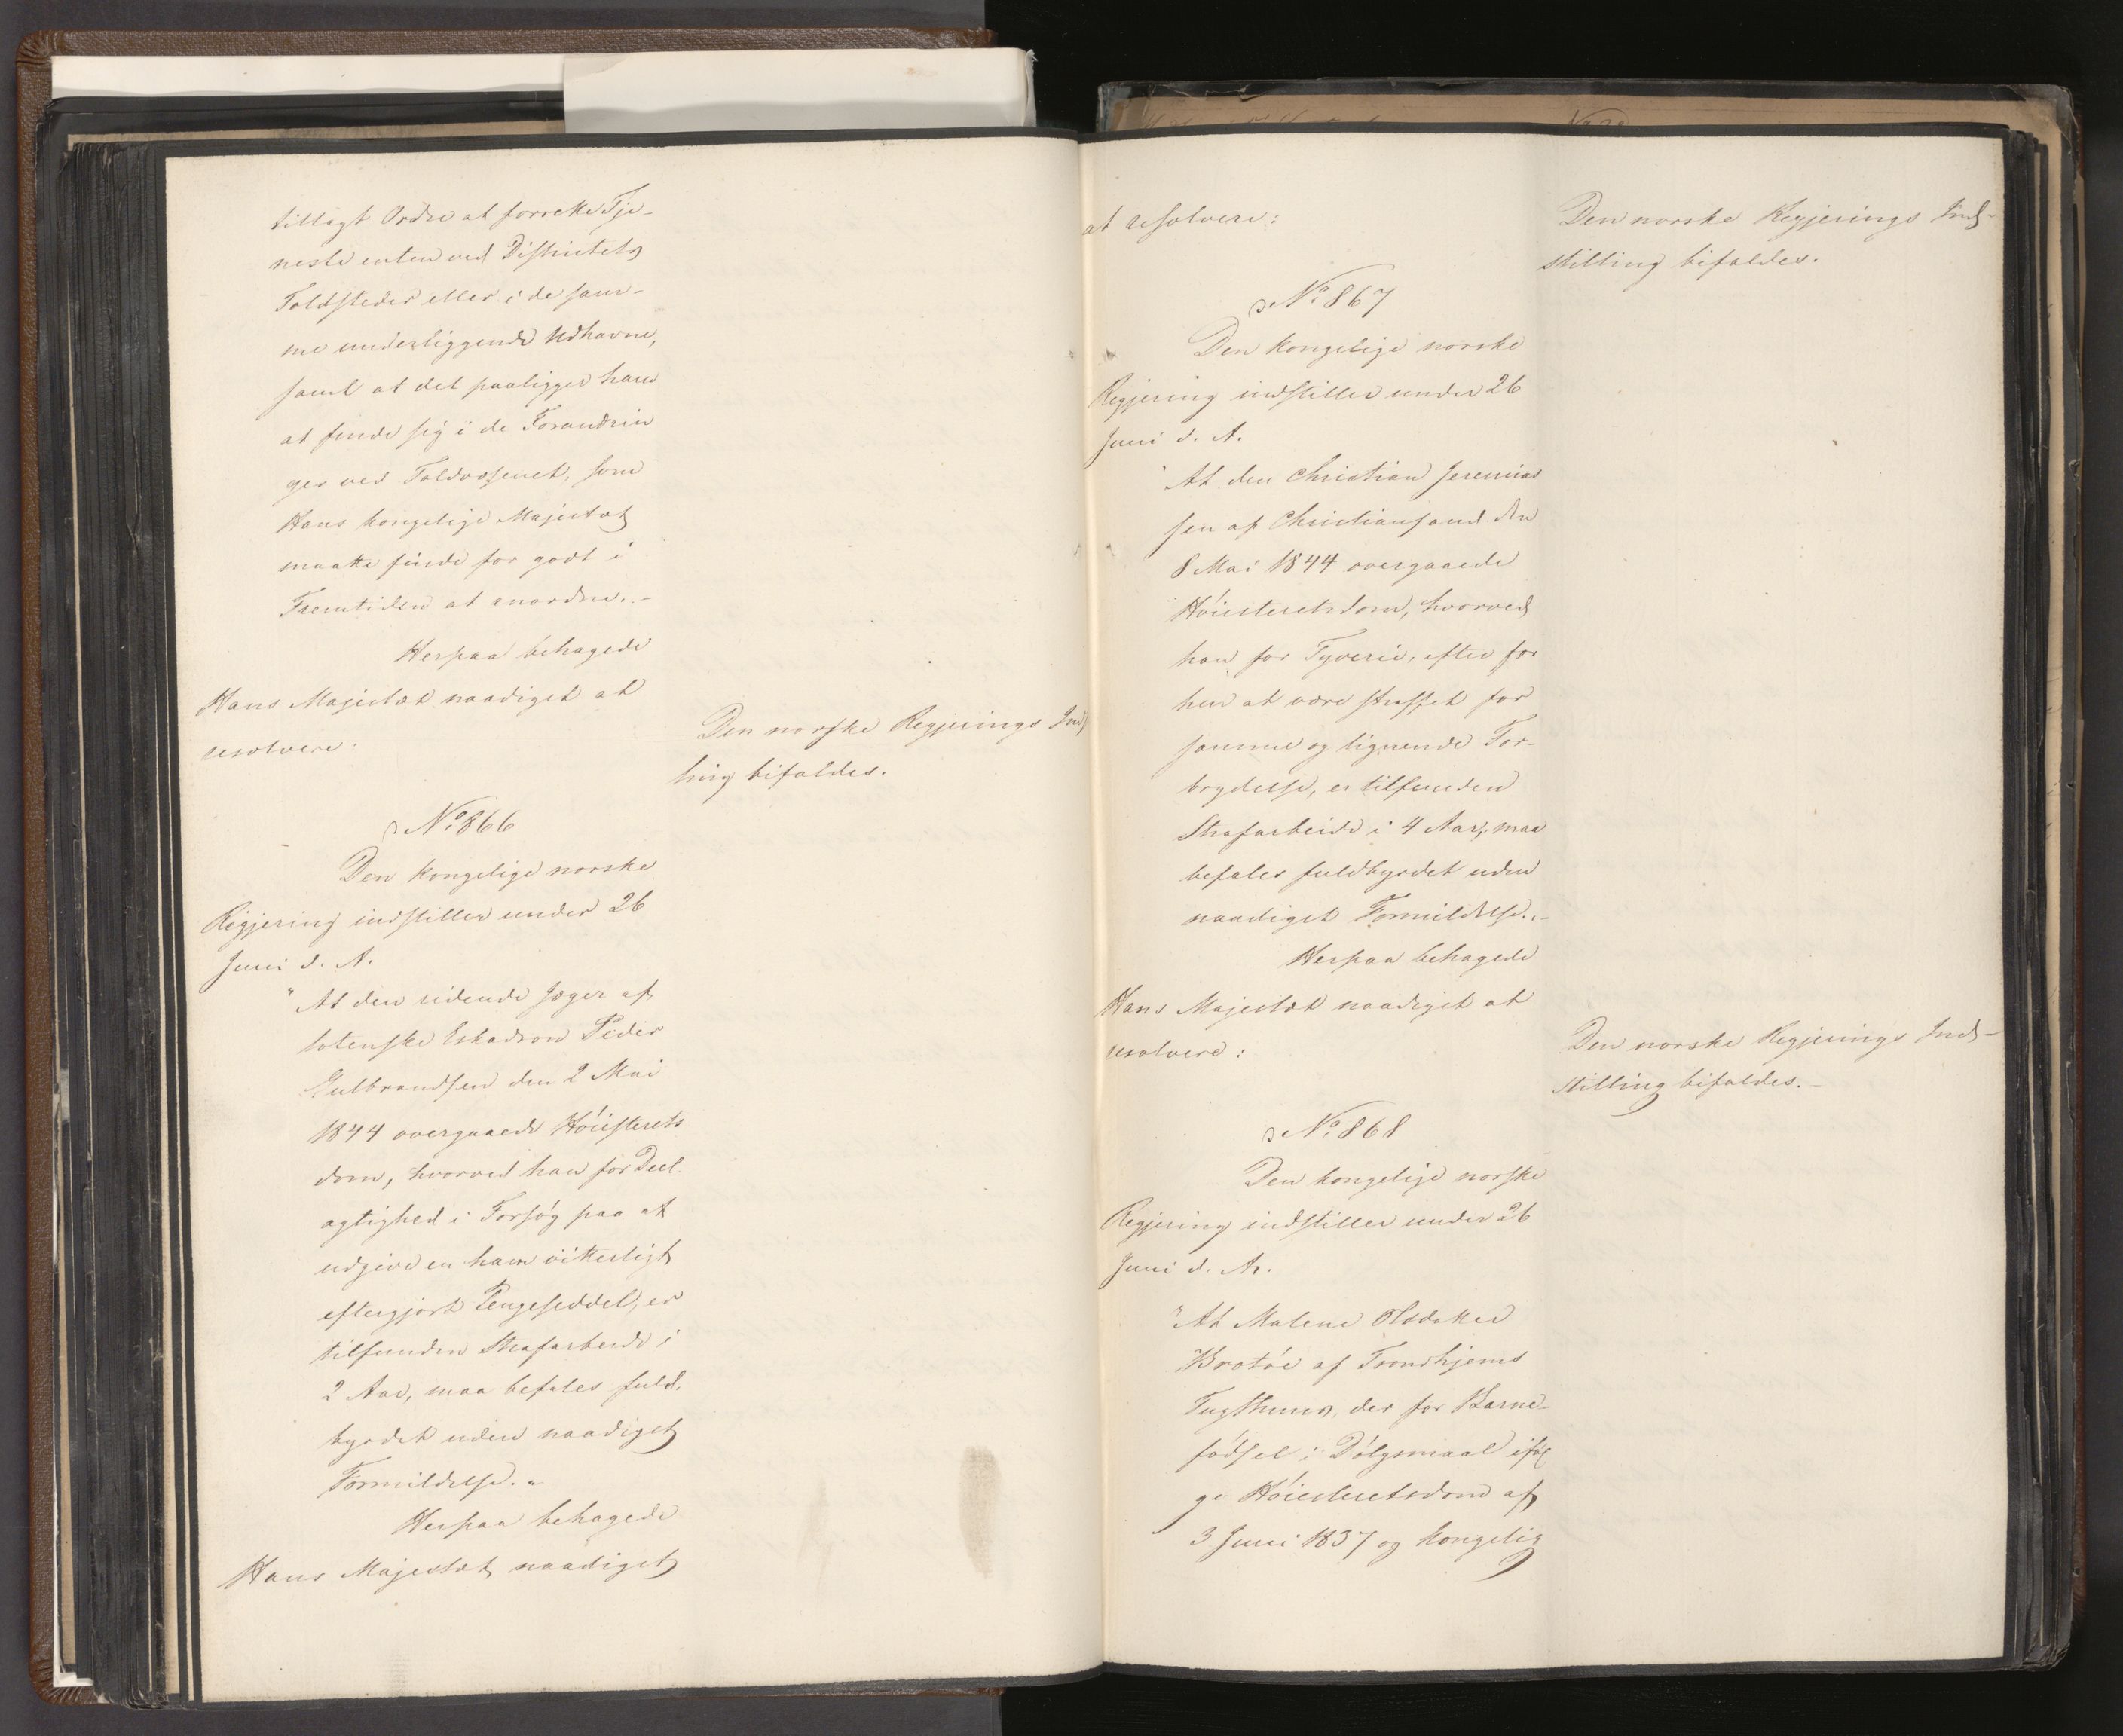 tillagt Ordre at forrette Tje-
neste enten ved Districtets
Toldsteder eller i de sam-
me underliggende Udhavne,
samt at det paaligger ham
at finde sig i de Forandrin
ger ved Toldvæsenet, som
Hans kongelige Majestæt
maatte finde for godt i
Fremtiden at anordne.-
Herpaa behagede
Hans Majestæt naadigst at
resolvere:
Den norske Regjerings Ind
ling bifaldes.
No 866
Den kongelige norske
Regjering indstiller under 26
Juni d. A.
"At den ridende Jæger af
totenske Eskadron Peder
Gulbrandsen den 2 Mai
1844 overgaaede Höiesterets
dom, hvorved han for Deel
agtighed i Forsög paa at
udgive en ham vitterligt
eftergjort Pengeseddel, er
tilfunden Strafarbeide i
2 Aar, maa befales fuld.
byrdet uden naadigst
Formildelse."
Herpaa behagede
Hans Majestæt naadigst
at resolvere:
Den norske Regjerings Ind-
stilling bifaldes.
No 867
Den kongelige norske
Regjering indstiller under 26
Juni d. A.
"At den Christian Jeremias
sen af Christiansand den
8 Mai 1844 overgaaede
Höiesteretsdom, hvorved
han for Tyverie, efter for
hen at være straffet for
samme og lignende For-
brydelse, er tilfunden
Strafarbeide i 4 Aar, maa
befales fuldbyrdet uden
naadigst Formildelse."-
Herpaa behagede
Hans Majestæt naadigst at
resolvere:
Den norske Regjerings Ind-
stilling bifaldes.-
No 868
Den kongelige norske
Regjering indstiller under 26
Juni d. A.
"At Malene Olsdatter
Brotöe af Trondhjems
Tugthuus, der for Barne-
födsel i Dölgsmaal iföl
ge Höiesteretsdom af
3 Juni 1837 og kongelig